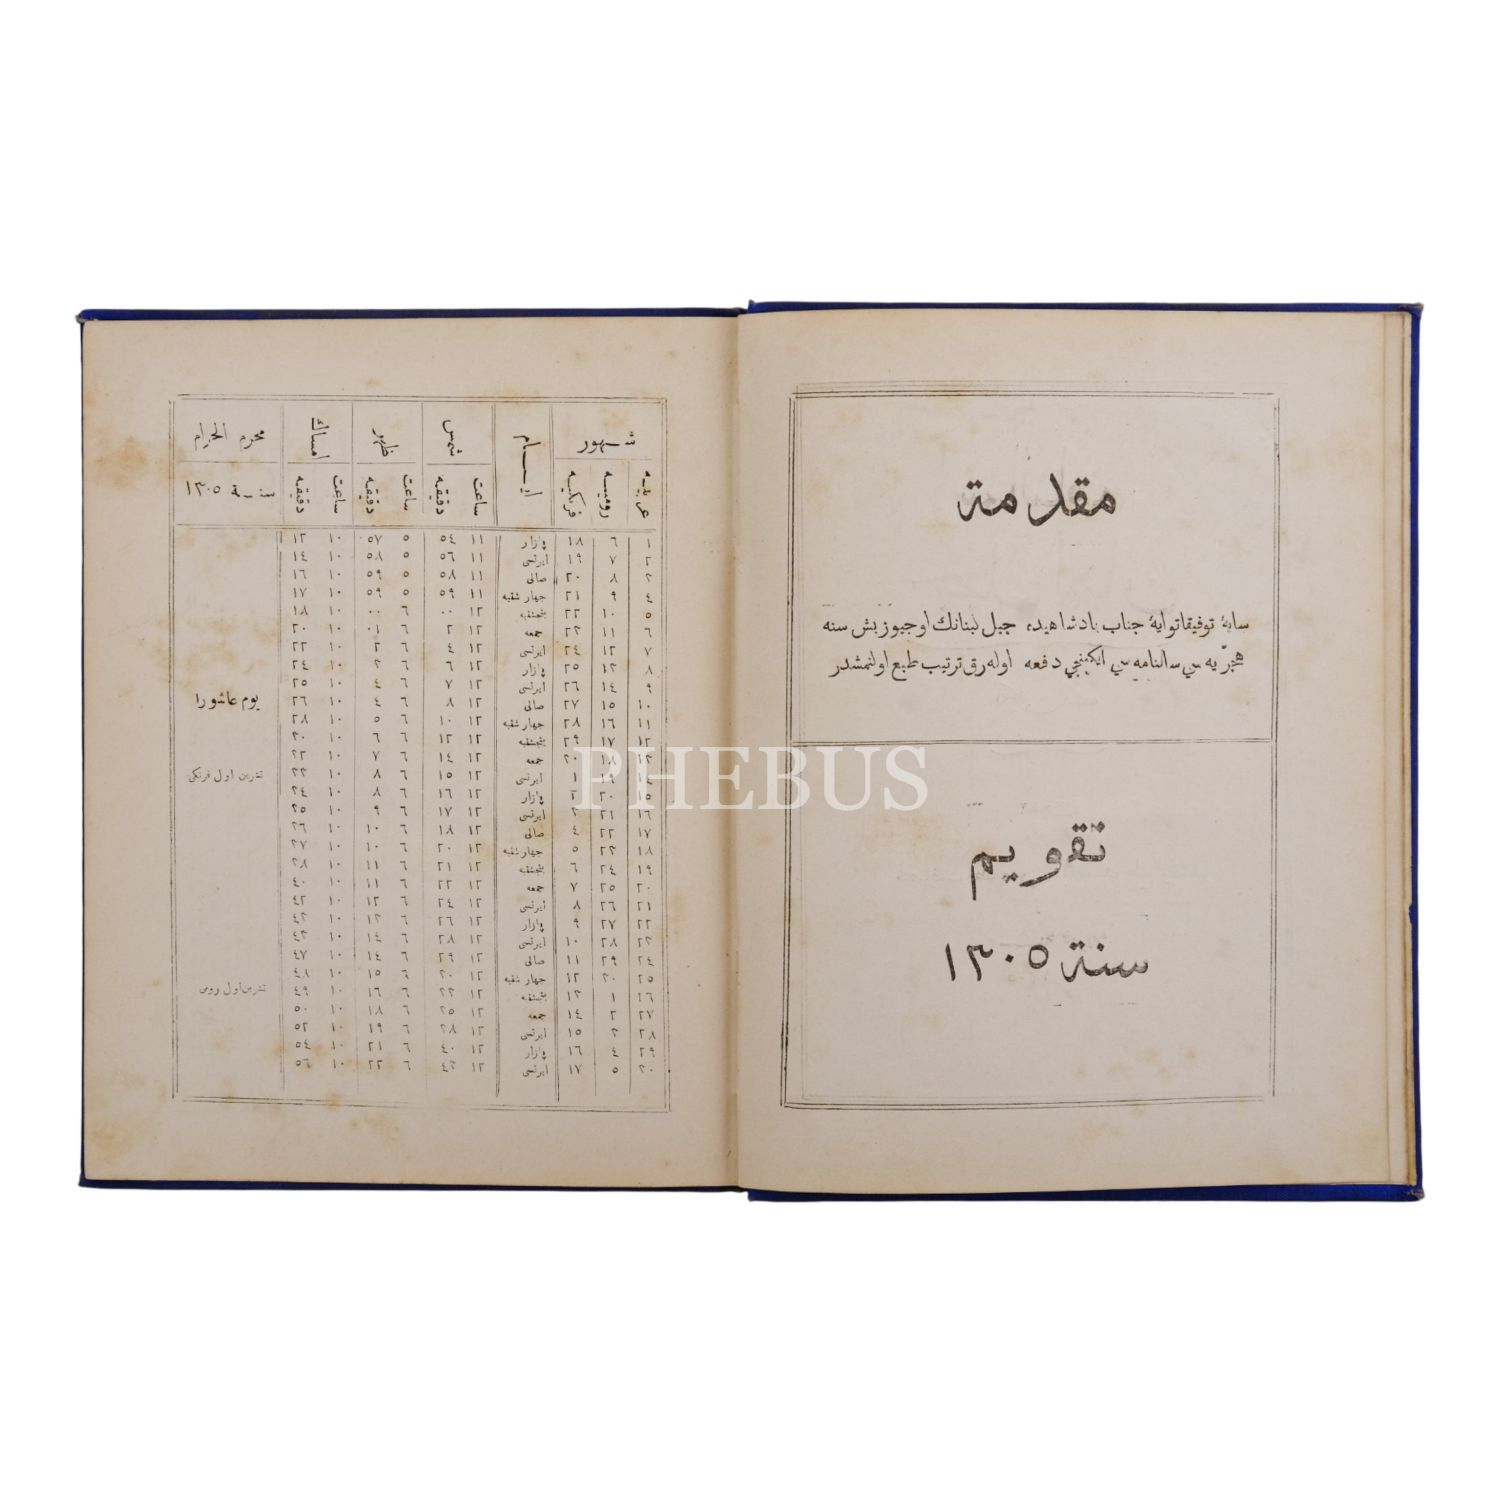 مقدمة
سایۀ توفیقاتوایۀ جناب پادشاهیده جبل لبنانك اوچیوز بش سنه
هجرّیه سي سالنامه سي ایکینجي دفعه اوله رق ترتیب طبع اولنمشدر
تقویم
سنة ١٣٠٥
شهور ایام شمس ظهر امساك محرم الحرام
عربیه رومیه فرنکیه ساعت دقیقه ساعت دقیقه ساعت دقیقه سنة ١٣٠٥
١ ٦ ١٨ پازار ١١ ٥٤ ٥ ٥٧ ١٠ ١٣
٢ ٧ ١٩ ایرتسی ١١ ٥٦ ٥ ٥٨ ١٠ ١٤
٣ ٨ ٢٠ صالی ١١ ٥٨ ٥ ٥٩ ١٠ ١٦
٤ ٩ ٢١ چهار شنبه ١١ ٥٩ ٥ ٥٩ ١٠ ١٧
٥ ١٠ ٢٢ پنجشنبه ١٢ ٠٠ ٦ ٠٠ ١٠ ١٨
٦ ١١ ٢٣ جمعه ١٢ ٢ ٦ ٠١ ١٠ ٢٠
٧ ١٢ ٢٤ ایرتسی ١٢ ٤ ٦ ٢ ١٠ ٢٢
٨ ١٣ ٢٥ پازار ١٢ ٦ ٦ ٣ ١٠ ٢٤
٩ ١٤ ٢٦ ایرتسی ١٢ ٧ ٦ ٤ ١٠ ٢٥
١٠ ١٥ ٢٧ صالی ١٢ ٨ ٦ ٤ ١٠ ٢٦ یوم عاشورا
١١ ١٦ ٢٨ چهار شنبه ١٢ ١٠ ٦ ٥ ١٠ ٢٨
١٢ ١٧ ٢٩ پنجشنبه ١٢ ١٢ ٦ ٦ ١٠ ٣٠
١٣ ١٨ ٣٠ جمعه ١٢ ١٤ ٦ ٧ ١٠ ٣٢
١٤ ١٩ ١ ایرتسی ١٢ ١٥ ٦ ٨ ١٠ ٣٣ تشرین اول فرنکی
١٥ ٢٠ ٢ پازار ١٢ ١٦ ٦ ٨ ١٠ ٣٤
١٦ ٢١ ٣ ایرتسی ١٢ ١٧ ٦ ٩ ١٠ ٣٥
١٧ ٢٢ ٤ صالی ١٢ ١٨ ٦ ١٠ ١٠ ٣٦
١٨ ٢٣ ٥ چهار شنبه ١٢ ٢٠ ٦ ١٠ ١٠ ٣٧
١٩ ٢٤ ٦ پنجشنبه ١٢ ٢١ ٦ ١١ ١٠ ٣٨
٢٠ ٢٥ ٧ جمعه ١٢ ٢٢ ٦ ١١ ١٠ ٤٠
٢١ ٢٦ ٨ ایرتسی ١٢ ٢٤ ٦ ١٢ ١٠ ٤٢
٢٢ ٢٧ ٩ پازار ١٢ ٢٦ ٦ ١٣ ١٠ ٤٣
٢٣ ٢٨ ١٠ ایرتسی ١٢ ٢٨ ٦ ١٤ ١٠ ٤٣
٢٤ ٢٩ ١١ صالی ١٢ ٢٩ ٦ ١٤ ١٠ ٤٧
٢٥ ٣٠ ١٢ چهار شنبه ١٢ ٣٠ ٦ ١٥ ١٠ ٤٨
٢٦ ١ ١٣ پنجشنبه ١٢ ٣٣ ٦ ١٦ ١٠ ٤٩ تشرین اول رومی
٢٧ ٢ ١٤ جمعه ١٢ ٣٥ ٦ ١٨ ١٠ ٥٠
٢٨ ٣ ١٥ ایرتسی ١٢ ٣٨ ٦ ١٩ ١٠ ٥٢
٢٩ ٤ ١٦ پازار ١٢ ٤٠ ٦ ٢١ ١٠ ٥٤
٣٠ ٥ ١٧ ایرتسی ١٢ ٤٣ ٦ ٢٢ ١٠ ٥٦
PHEBUS